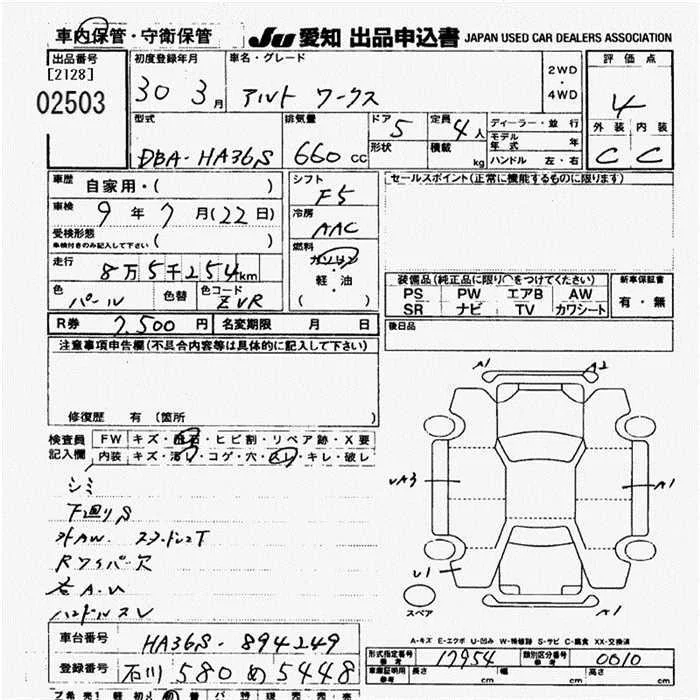 車内保管・守衛保管 JU 愛知 出品申込書 JAPAN USED CAR DEALERS ASSOCIATION
出品番号 初度登録年月 車名・グレード 2WD・4WD 評価点
[2128]
02503 30年 3月 アルト ワークス 4
型式 排気量 ドア 5 定員 4人 ディーラー・並行 外装 内装
DBA-HA36S 660cc 形状 積載 kg モデル年式 年 C C
ハンドル 左・右
車歴 自家用・( ) シフト F5 セールスポイント(正常に機能するものに限ります)
車検 9年 7月(22日) 冷房 AAC
受検形態 ( ) 燃料
車検付きのみ記入して下さい ガソリン
走行 8万5千254km 軽・油
色 パール 色替 色コード ZVR ( )
装備品(純正品に限り○をつけてください) 新車保証書
PS PW エアB AW 有・無
SR ナビ TV カワシート
R券 7,500円 名変期限 月 日 後日品
注意事項申告欄(不具合内容等は具体的に記入して下さい)
修復歴 有 (箇所 )
検査員記入欄 FW キズ・飛石・ヒビ割・リペア跡・X要
内装 キズ・汚レ・コゲ・穴・スレ・キレ・破レ
シミ
下廻りS
外AW
Rワイパー欠
ハンドルスレ
A1 A2
A1
U1 A1
スペア
A-キズ E-エクボ U-凹み W-補修跡 S-サビ C-腐食 XX-交換済
車台番号 HA36S-894249
登録番号 石川 580 め 5448
形式指定番号 参考 17954 類別区分番号 参考 0010
車庫証明用 参考 長さ cm 幅 cm 高さ cm